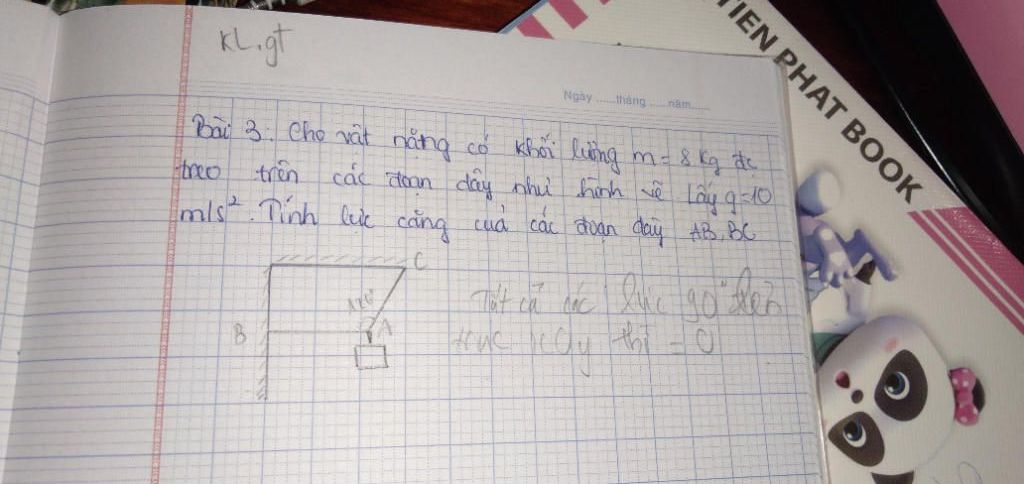 KL, gt
Ngày ......tháng ......năm......
TIEN PHAT BOOK
Bài 3: Cho vật nặng có khối lượng m = 8 kg đc
treo trên các đoạn dây như hình vẽ Lấy g = 10
m/s². Tính lực căng của các đoạn dây AB, BC
C
120°
B
A
Tất cả các lực 90° đến
trục xOy thì = 0